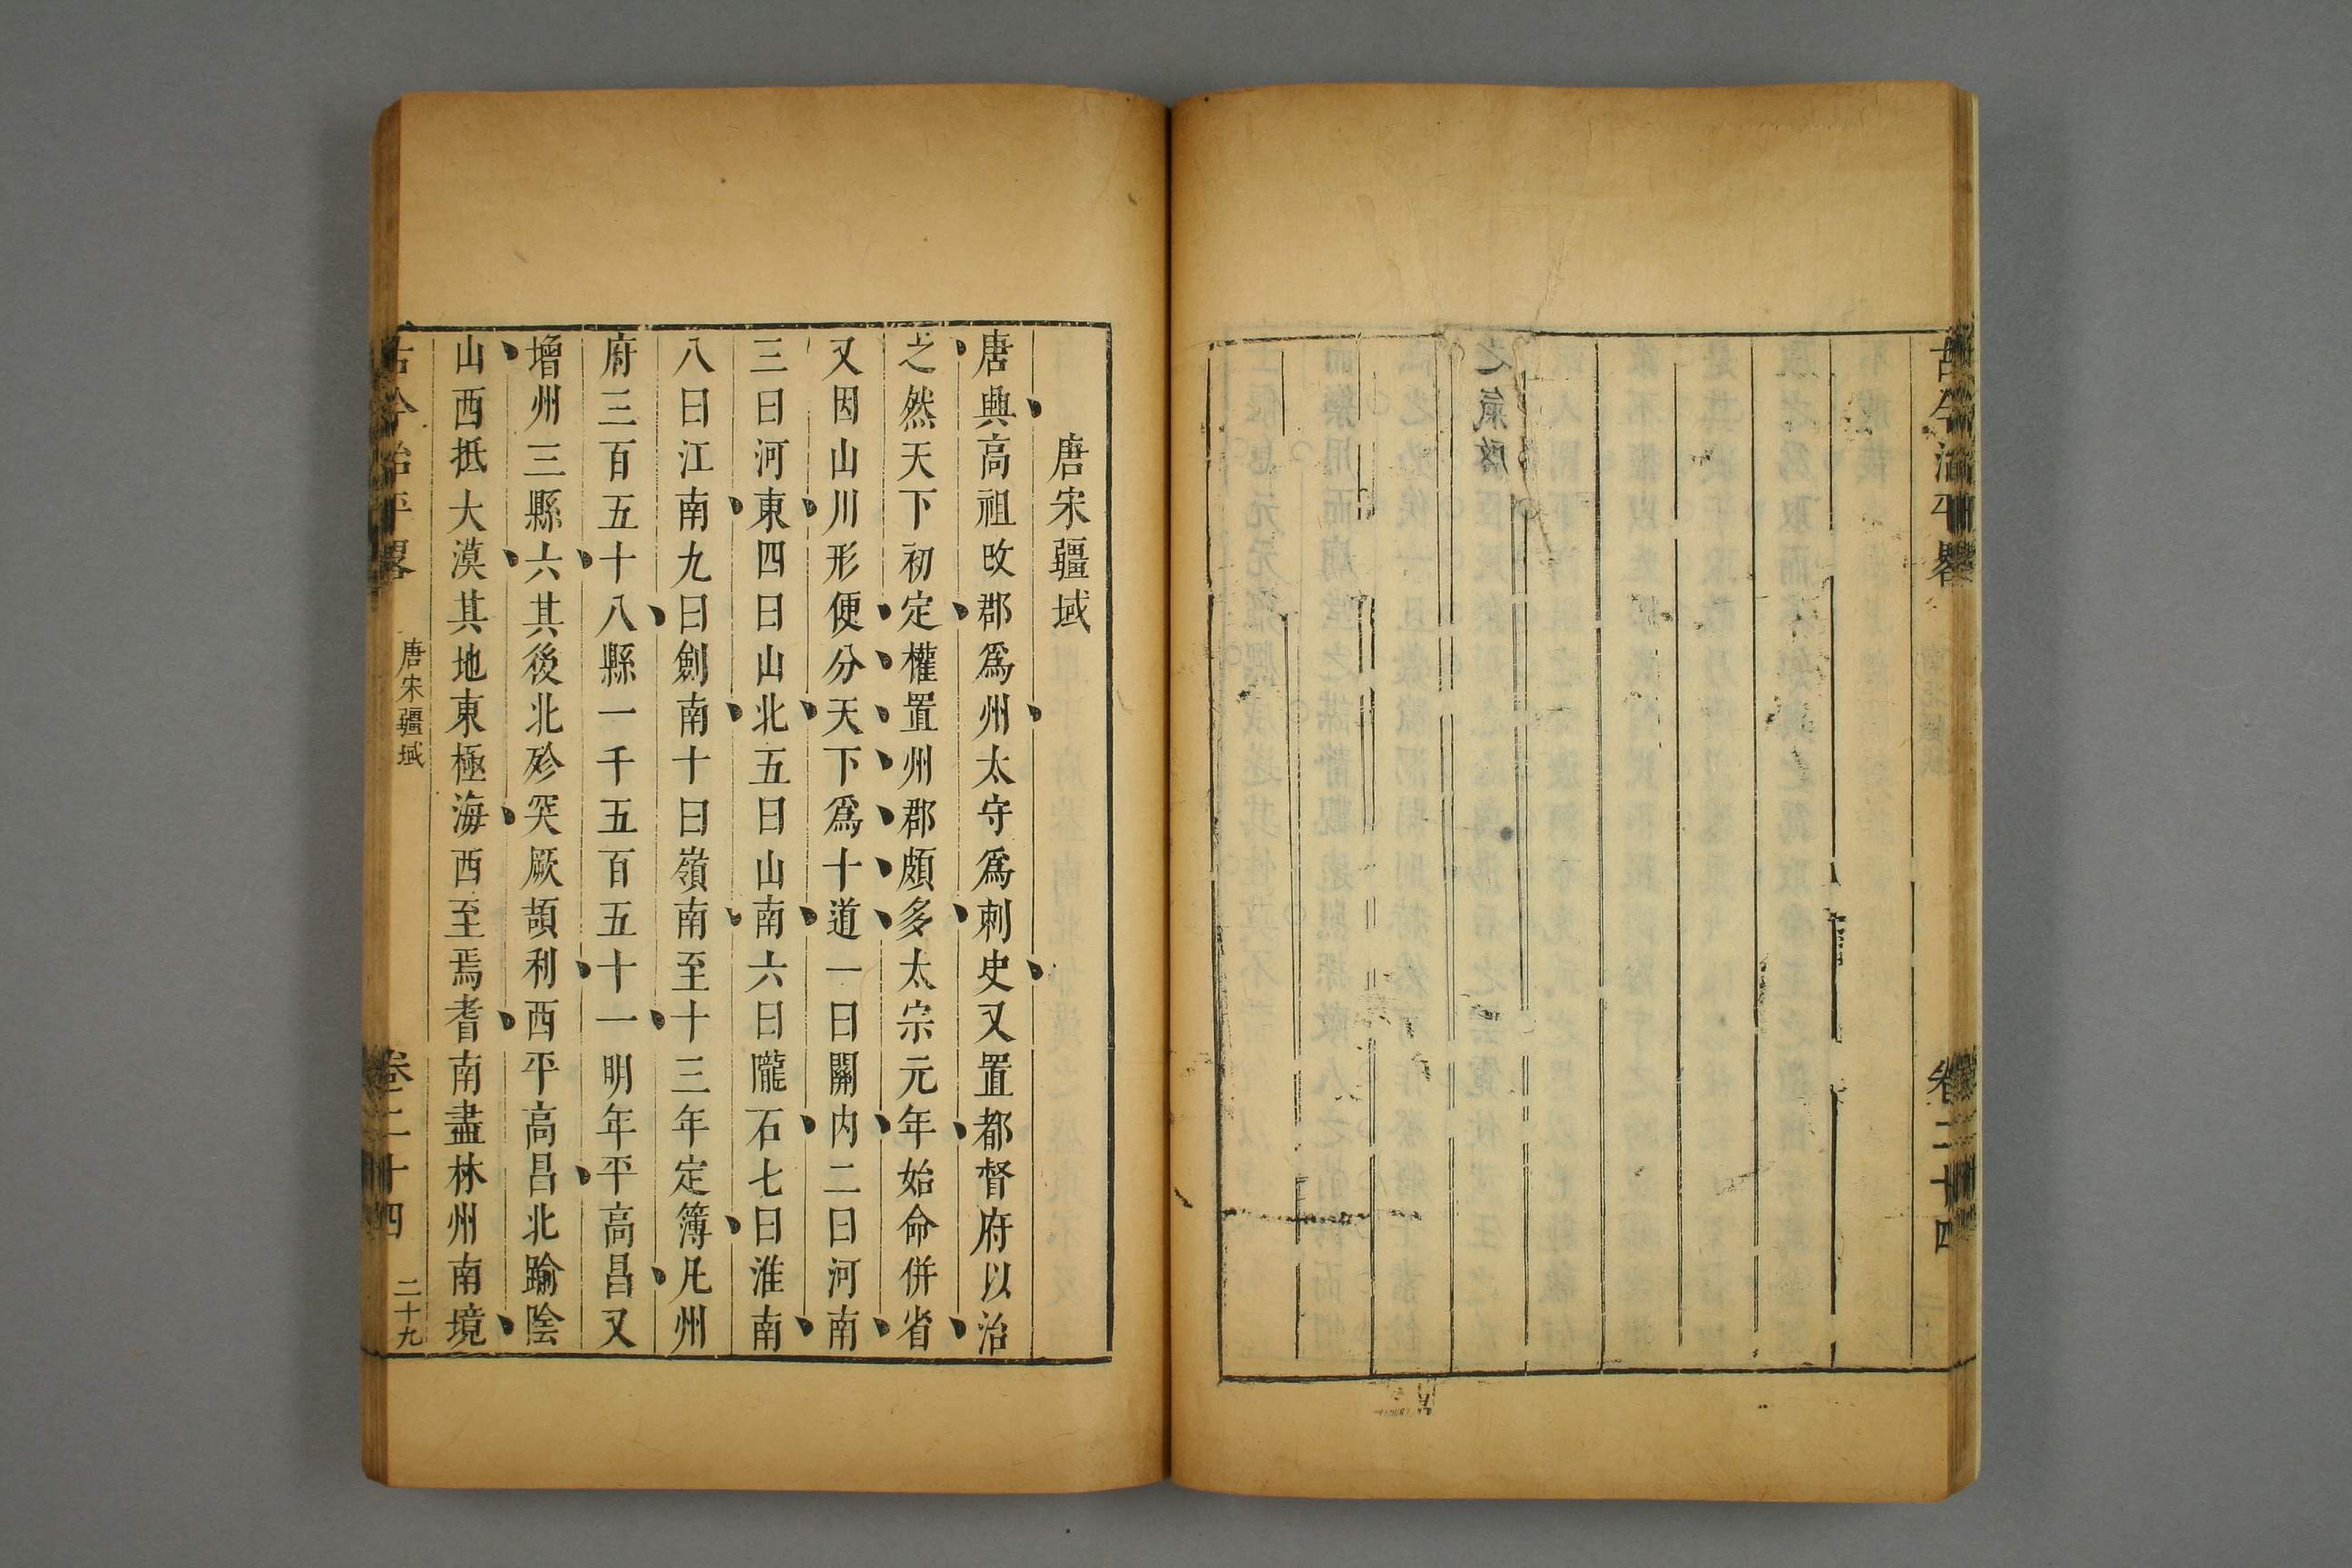 古今治平畧
卷二十四
之氣
唐宋疆域
唐興高祖攺郡爲州太守爲刺史又置都督府以治
之然天下初定權置州郡頗多太宗元年始命併省
又因山川形便分天下爲十道一曰關内二曰河南
三曰河東四曰山北五曰山南六曰隴石七曰淮南
八曰江南九曰劍南十曰嶺南至十三年定簿凡州
府三百五十八縣一千五百五十一明年平高昌又
增州三縣六其後北殄突厥頡利西平高昌北踰隂
山西抵大漠其地東極海西至焉耆南盡林州南境
古今治平畧
唐宋疆域
卷二十四
二十九